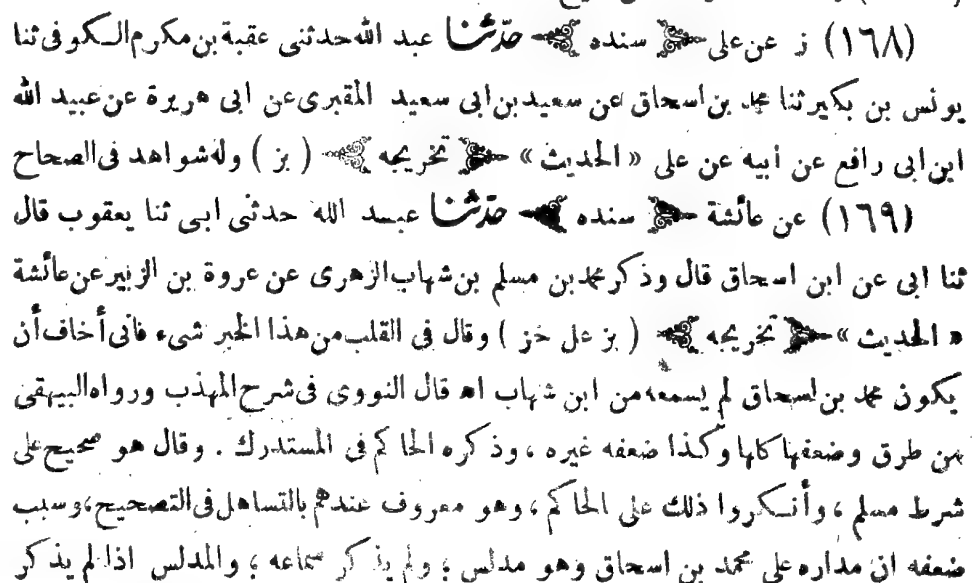 (١٦٨) ز عن على ﴿ سنده ﴾ حدّثنا عبد الله حدثنى عقبة بن مكرم الكوفى ثنا
يونس بن بكير ثنا محمد بن اسحاق عن سعيد بن ابى سعيد المقبرى عن ابى هريرة عن عبيد الله
ابن ابى رافع عن أبيه عن على « الحديث » ﴿ تخريجه ﴾ ( بز ) وله شواهد فى الصحاح
(١٦٩) عن عائشة ﴿ سنده ﴾ حدّثنا عبد الله حدثنى ابى ثنا يعقوب قال
ثنا ابى عن ابن اسحاق قال وذكر محمد بن مسلم بن شهاب الزهرى عن عروة بن الزبير عن عائشة
« الحديث » ﴿ تخريجه ﴾ ( بز عل خز ) وقال فى القلب من هذا الخبر شىء فانى أخاف أن
يكون محمد بن اسحاق لم يسمعه من ابن شهاب اه قال النووى فى شرح المهذب ورواه البيهقى
من طرق وضعفها كلها وكذا ضعفه غيره ، وذكره الحاكم فى المستدرك . وقال هو صحيح على
شرط مسلم ، وأنكروا ذلك على الحاكم ، وهو معروف عندهم بالتساهل فى التصحيح ، وسبب
ضعفه ان مداره على محمد بن اسحاق وهو مدلس ؛ ولم يذكر سماعه ؛ والمدلس اذا لم يذكر